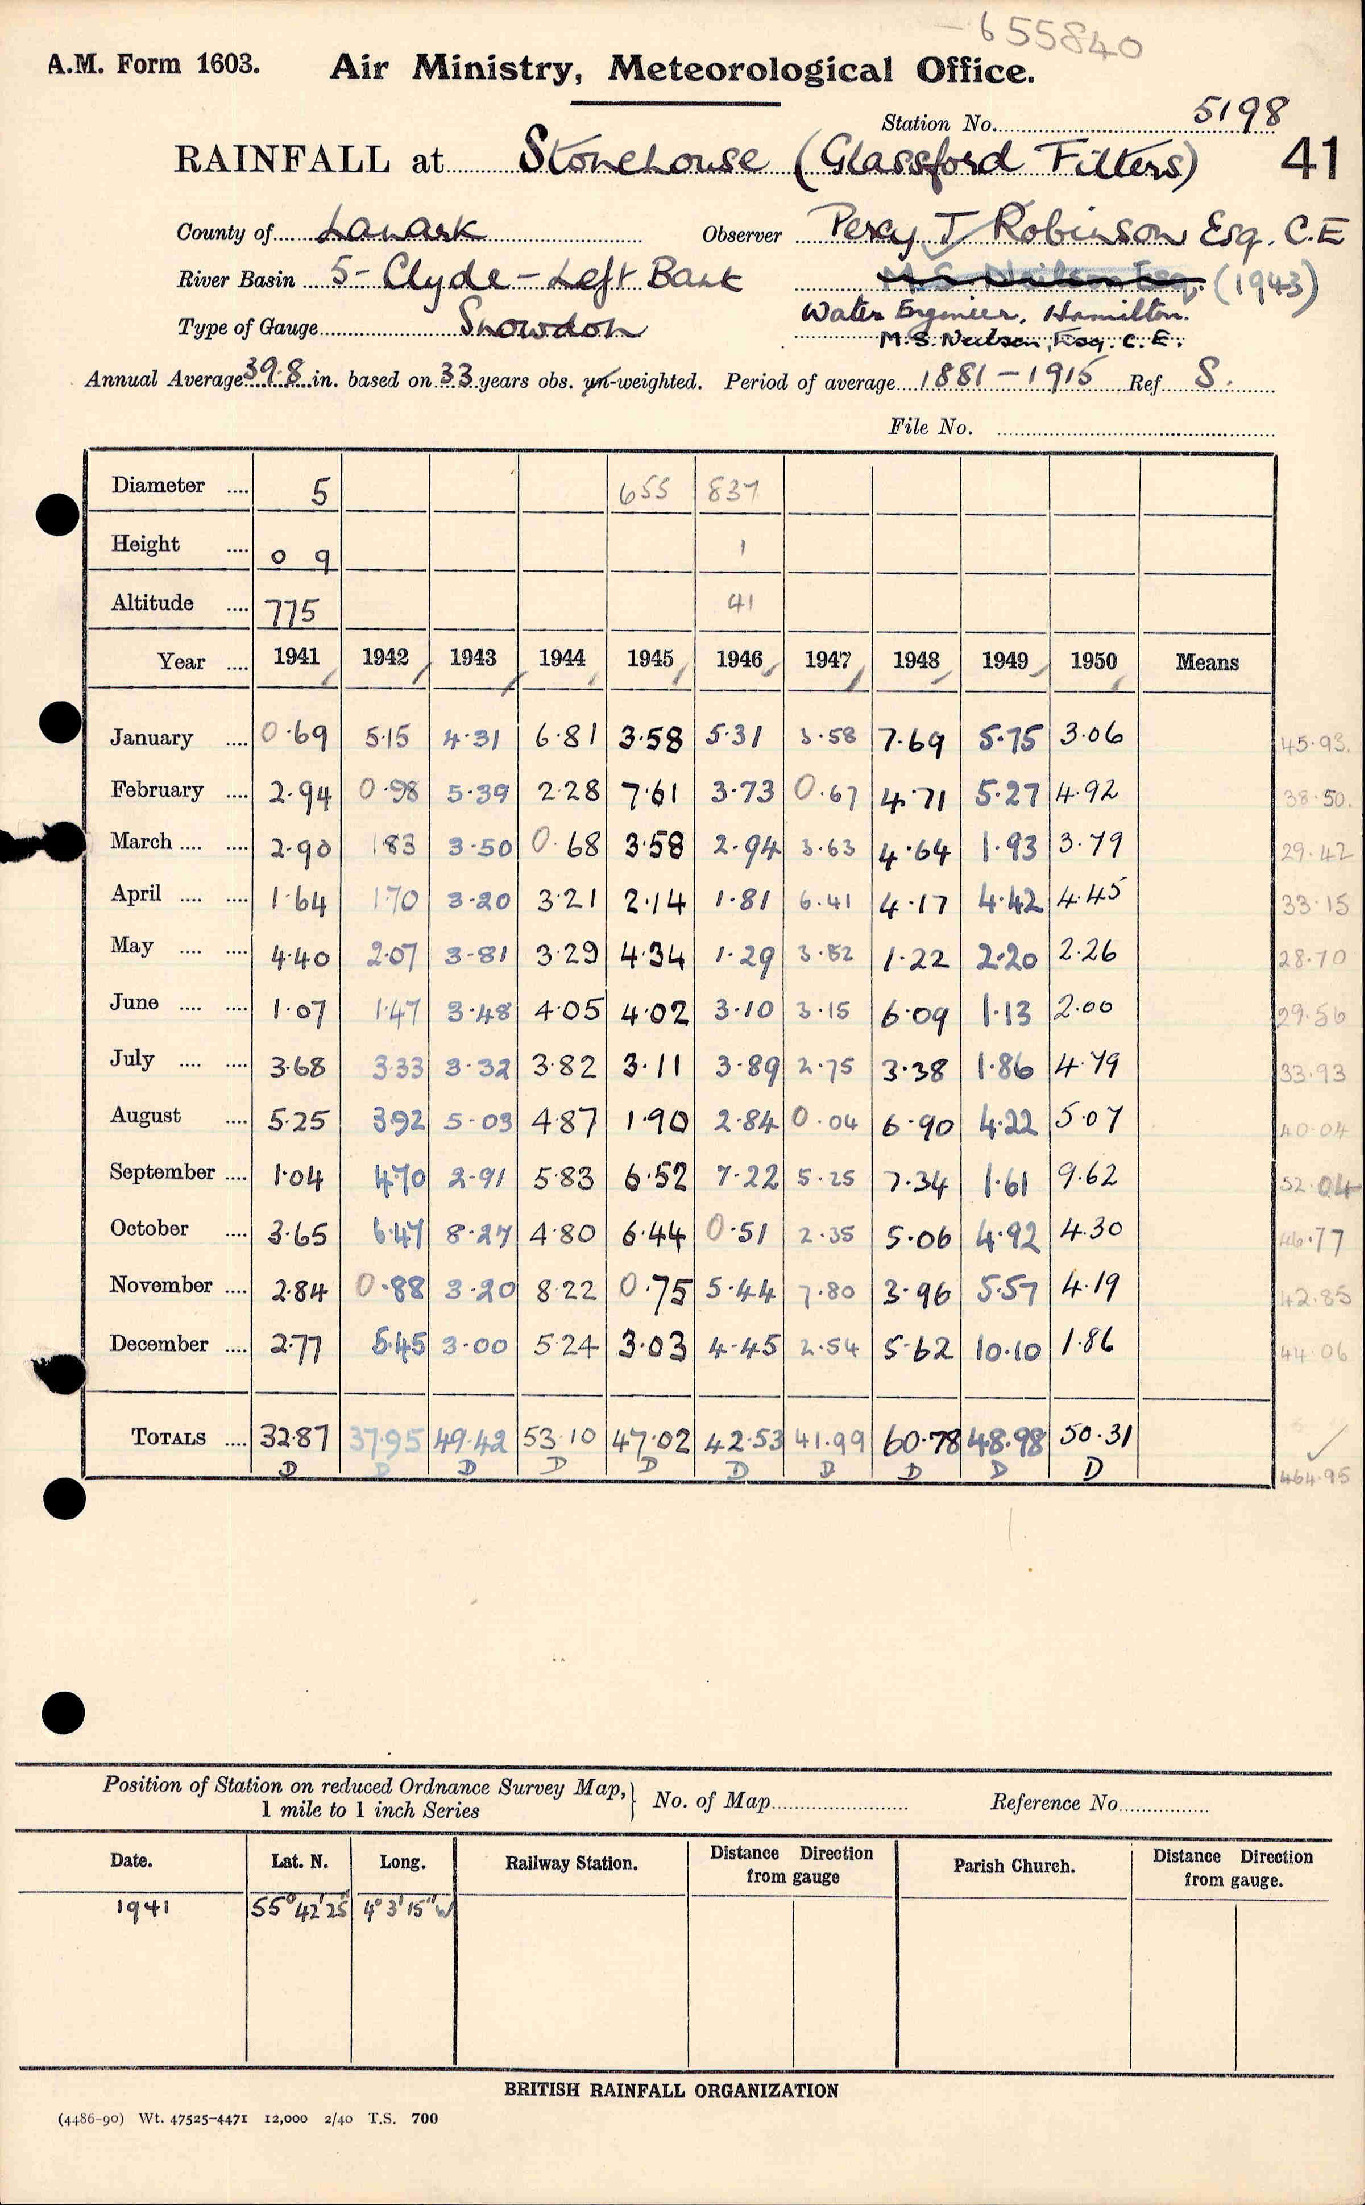 655840
A.M. Form 1603. Air Ministry, Meteorological Office.
Station No. 5198
RAINFALL at Stonehouse (Glassford Filters) 41
County of Lanark Observer Percy T Robinson Esq. C.E
River Basin 5 - Clyde - Left Bank M.S. Neilson Esq. (1943)
Type of Gauge Snowdon Water Engineer, Hamilton.
M.S. Neilson, Esq. C.E.
Annual Average 39.8 in. based on 33 years obs. un-weighted. Period of average 1881 - 1915 Ref S.
File No.
Diameter .... 5 655 837
Height .... 0 9 1
Altitude .... 775 41
Year .... 1941 1942 1943 1944 1945 1946 1947 1948 1949 1950 Means
January .... 0.69 5.15 4.31 6.81 3.58 5.31 3.58 7.69 5.75 3.06 45.93
February .... 2.94 0.98 5.39 2.28 7.61 3.73 0.67 4.71 5.27 4.92 38.50
March .... .... 2.90 1.83 3.50 0.68 3.58 2.94 3.63 4.64 1.93 3.79 29.42
April .... .... 1.64 1.70 3.20 3.21 2.14 1.81 6.41 4.17 4.42 4.45 33.15
May .... .... 4.40 2.07 3.81 3.29 4.34 1.29 3.82 1.22 2.20 2.26 28.70
June .... .... 1.07 1.47 3.48 4.05 4.02 3.10 3.15 6.09 1.13 2.00 29.56
July .... .... 3.68 3.33 3.32 3.82 3.11 3.89 2.75 3.38 1.86 4.79 33.93
August .... 5.25 3.92 5.03 4.87 1.90 2.84 0.04 6.90 4.22 5.07 40.04
September .... 1.04 4.70 2.91 5.83 6.52 7.22 5.25 7.34 1.61 9.62 52.04
October .... 3.65 6.47 8.27 4.80 6.44 0.51 2.35 5.06 4.92 4.30 46.77
November .... 2.84 0.88 3.20 8.22 0.75 5.44 7.80 3.96 5.57 4.19 42.85
December .... 2.77 5.45 3.00 5.24 3.03 4.45 2.54 5.62 10.10 1.86 44.06
TOTALS .... 32.87 37.95 49.42 53.10 47.02 42.53 41.99 60.78 48.98 50.31
D D D D D D D D D D 464.95
Position of Station on reduced Ordnance Survey Map,
1 mile to 1 inch Series } No. of Map Reference No.
Date. Lat. N. Long. Railway Station. Distance Direction from gauge Parish Church. Distance Direction from gauge.
1941 55° 42' 25" 4° 3' 15" W
BRITISH RAINFALL ORGANIZATION
(4486-90) Wt. 47525-4471 12,000 2/40 T.S. 700